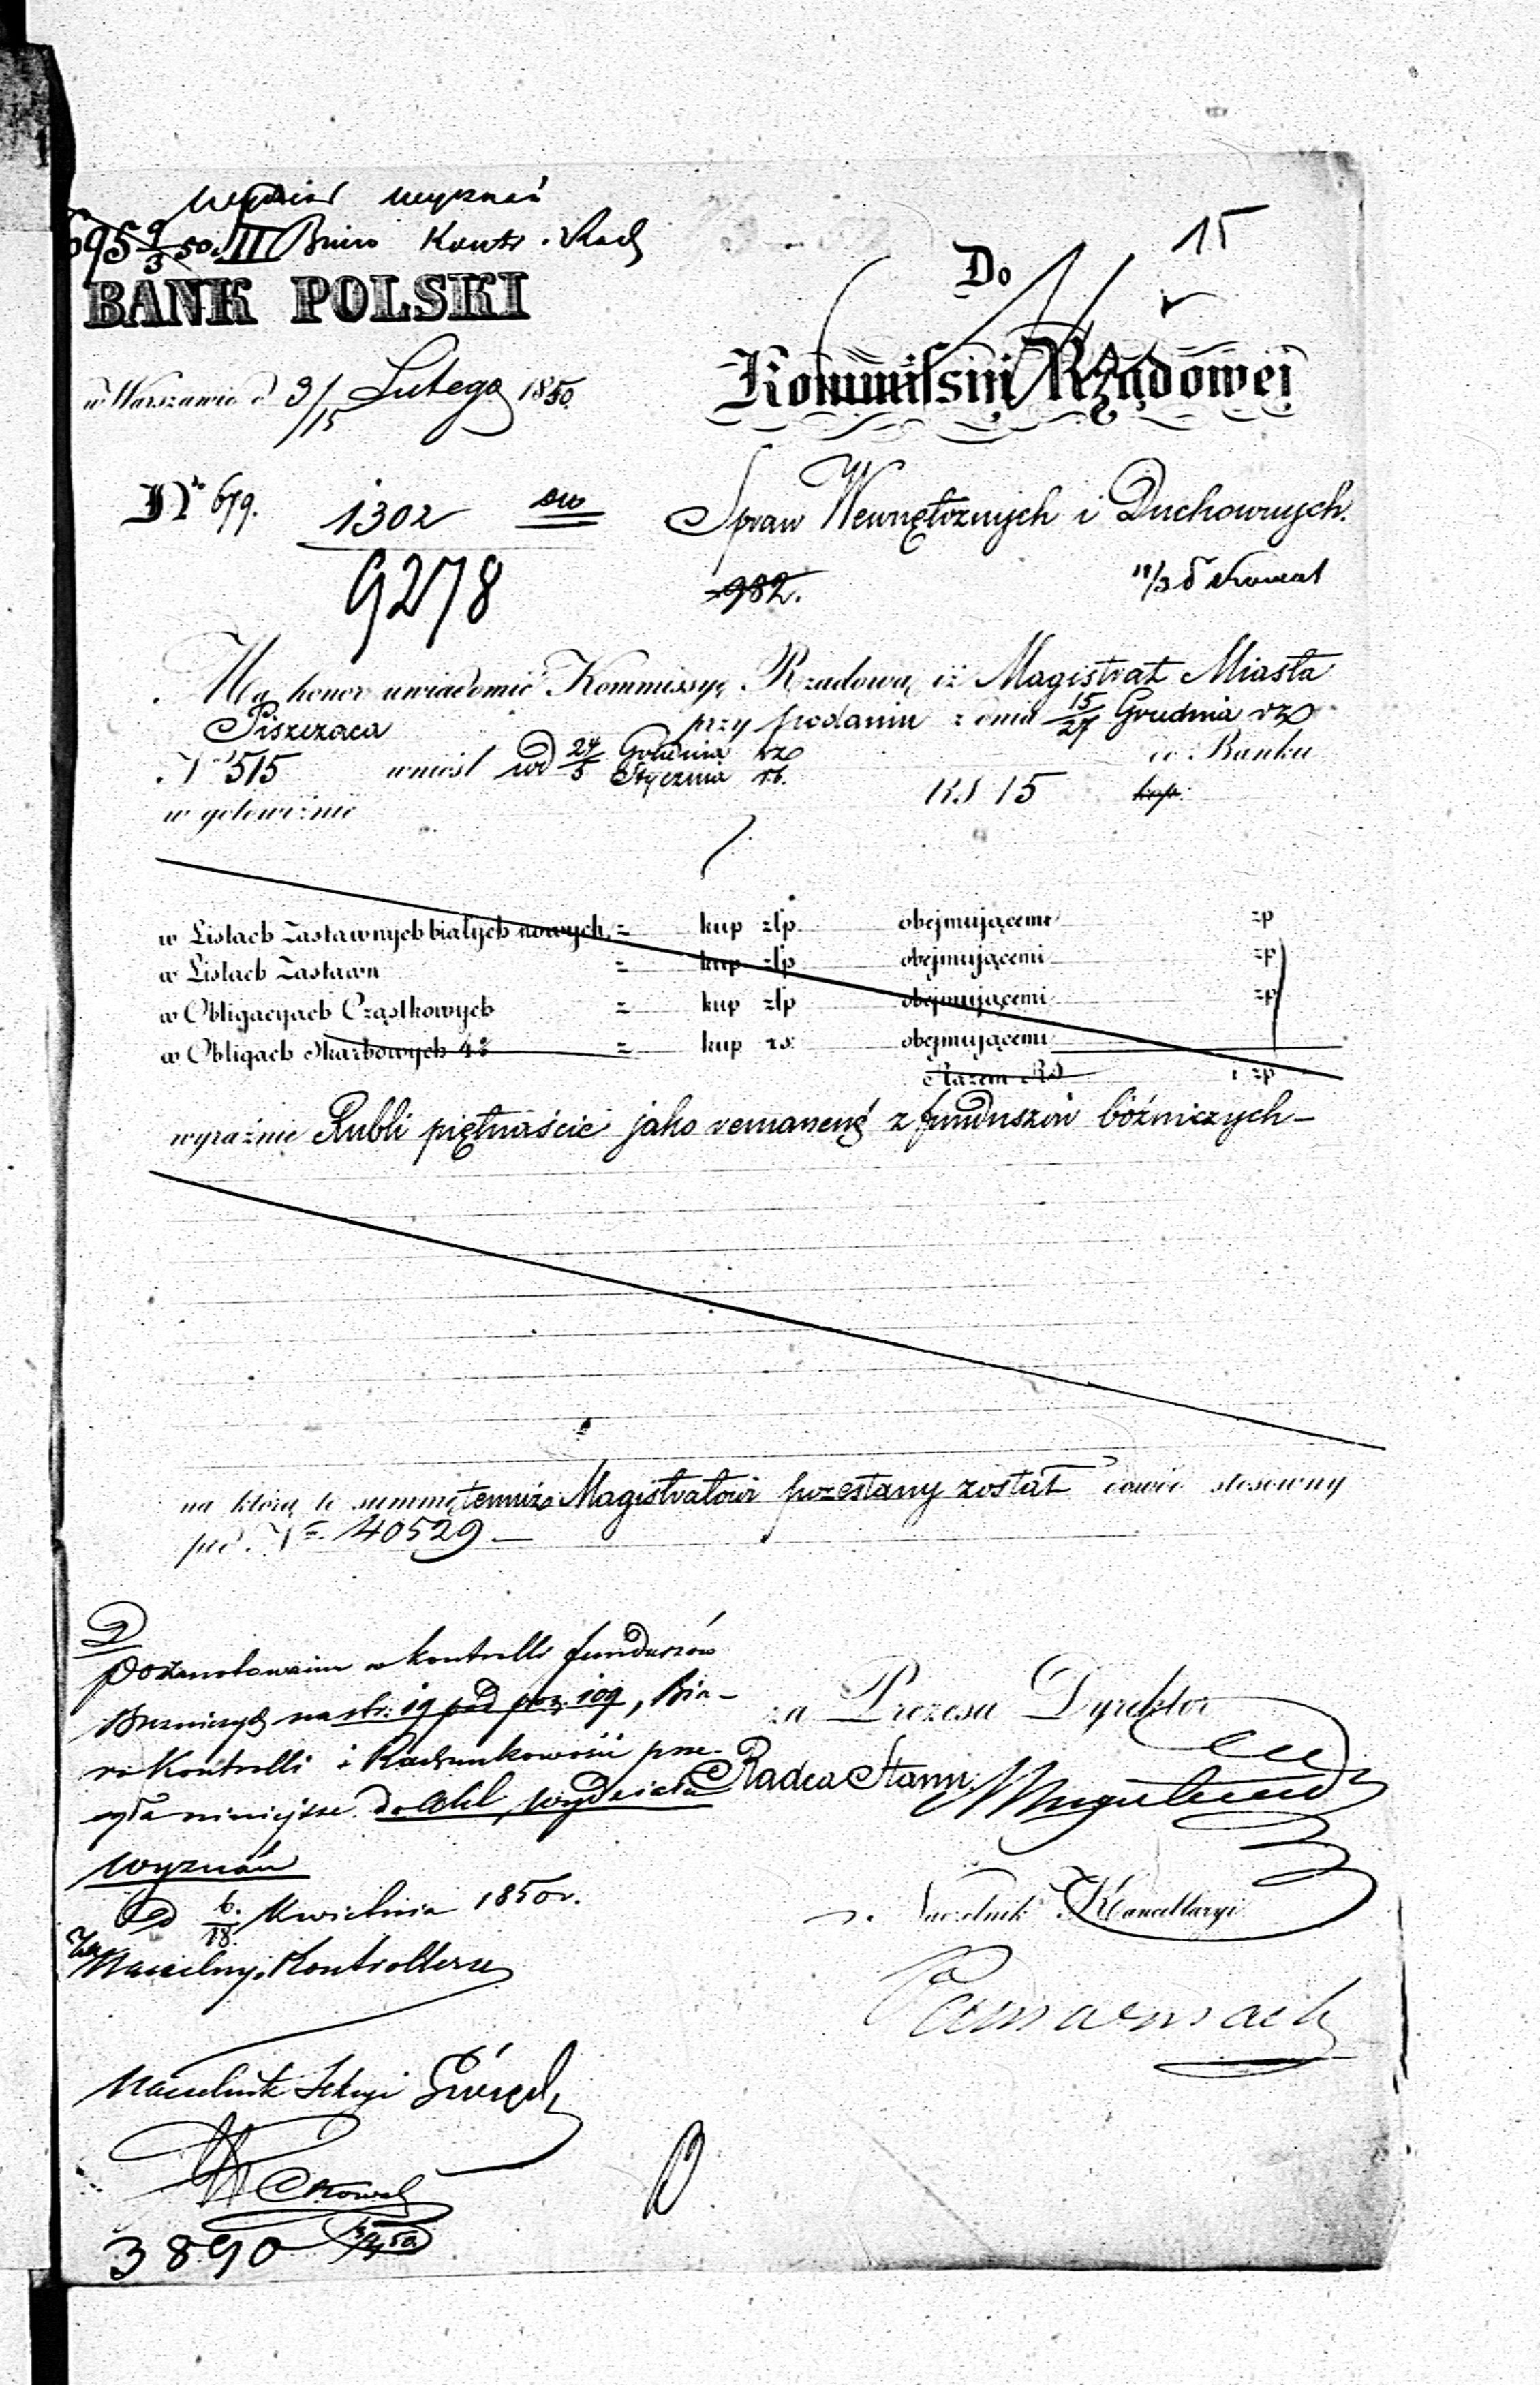 Wydział wyznań
695 9/3 50. III Biuro Kontr. i Rach
15
BANK POLSKI
Do
Kommissyi Rządowej
w Warszawie d 3/15 Lutego 1850.
Nr 679.
1302
9278
Spraw Wewnętrznych i Duchownych.
982.
Ma honor uwiadomić Kommissyę Rządową iż Magistrat Miasta
Piszczaca przy podaniu z dnia 15/27 Grudnia rz
Nr 515 wniósł w d 24/5 Grudnia rz Stycznia rb. do Banku
w gotowiźnie RS 15 kop:
w Listach Zastawnych białych nowych = kup złp obejmującemi zp
w Listach Zastawn = kup złp obejmującemi zp
w Obligacyach Cząstkowych = kup złp obejmującemi zp
w Obligach Skarbowych 4% = kup rs: obejmującemi
Razem RS i zp
wyraźnie Rubli piętnaście jako remanent z funduszów bóżniczych –
na którą to summę temuż Magistratowi przesłany został dowód stosowny
pod Nr 40529 –
Pozanotowaniu w kontrolli funduszów
Bożniczych na str: 19 pod poz: 109, Biu-
ro Kontrolli i Rachunkowości prze-
syła niniejsze do Akt Wydziału
Wyznań
d 6/18 Kwietnia 1850 r.
za Prezesa Dyrektor
Radca Stanu
Za Naczelny Kontroller
Naczelnik Kancellaryi
Naczelnik Sekcyi
3890